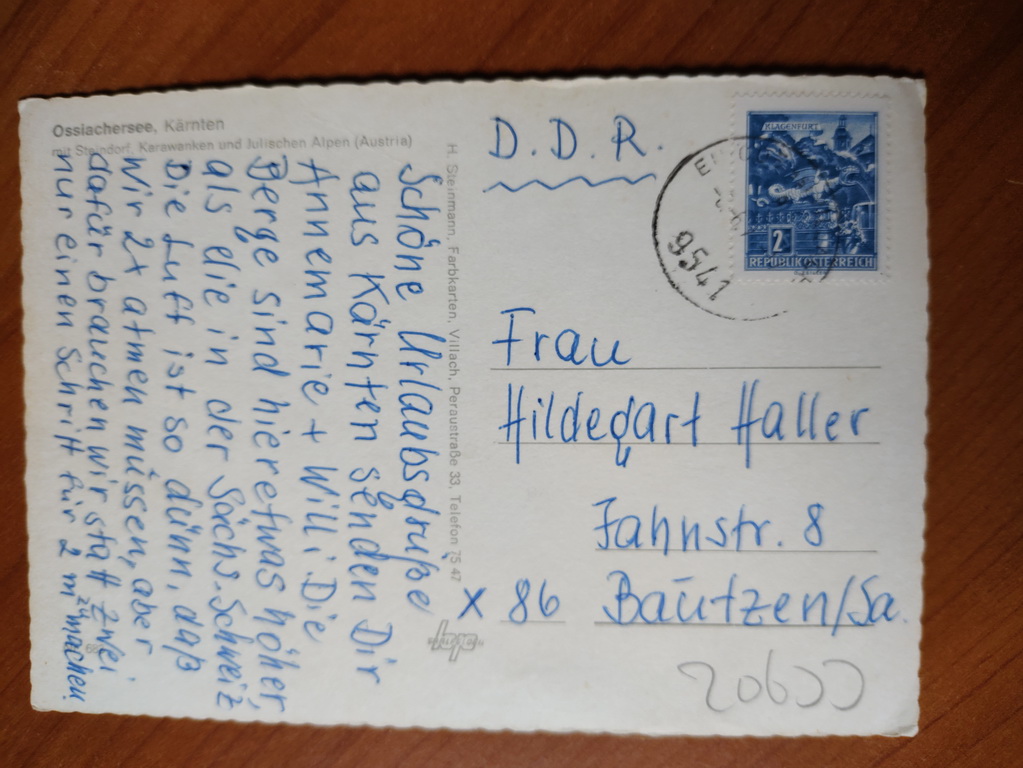 Ossiachersee, Kärnten
mit Steindorf, Karawanken und Julischen Alpen (Austria)
Schöne Urlaubsgrüße
aus Kärnten senden Dir
Annemarie + Willi. Die
Berge sind hier etwas höher,
als die in der Sächs. Schweiz
Die Luft ist so dünn, daß
Wir 2x atmen müssen, aber
dafür brauchen wir statt zwei
nur einen Schritt für 2 m zu machen.
H. Steinmann, Farbkarten, Villach, Peraustraße 33, Telefon 75 47
D. D. R.
KLAGENFURT
2
REPUBLIK ÖSTERREICH
9541
Frau
Hildegart Haller
Jahnstr. 8
X 86 Bautzen/Sa.